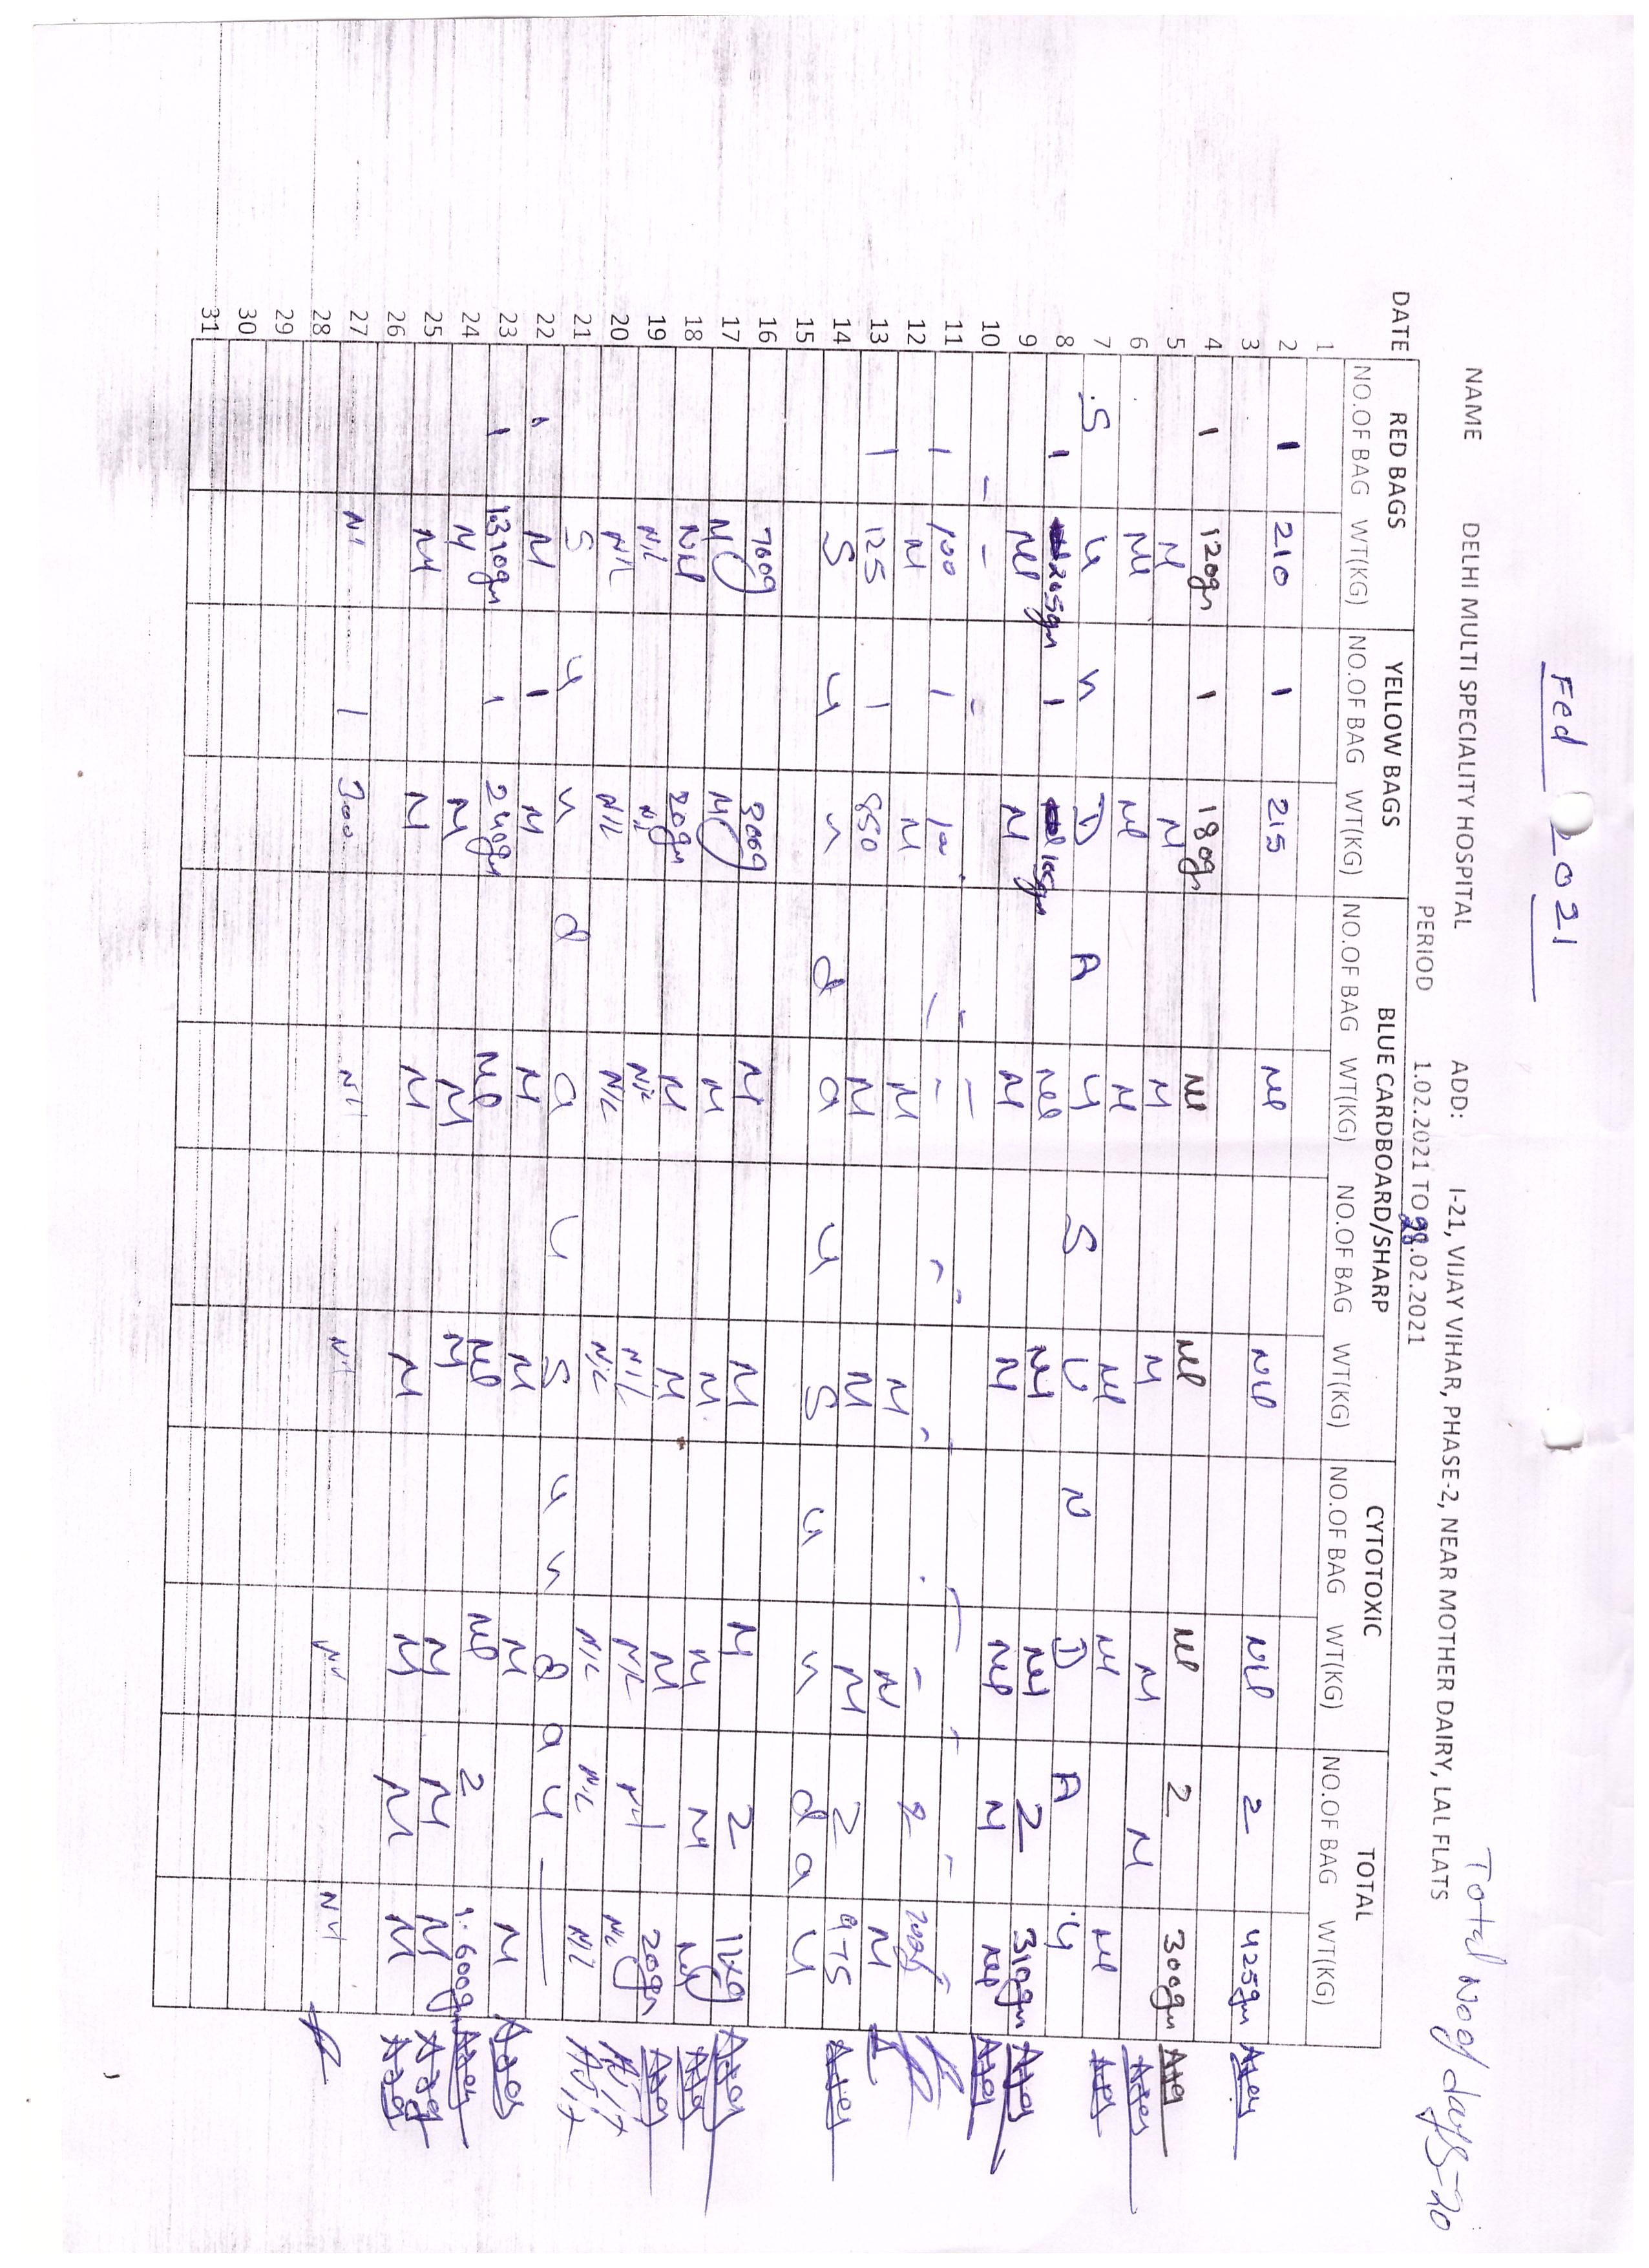 Fed 2021
Total No of days-20
NAME DELHI MULTI SPECIALITY HOSPITAL ADD: I-21, VIJAY VIHAR, PHASE-2, NEAR MOTHER DAIRY, LAL FLATS
PERIOD 1.02.2021 TO 28.02.2021
DATE RED BAGS YELLOW BAGS BLUE CARDBOARD/SHARP CYTOTOXIC TOTAL
NO.OF BAG WT(KG) NO.OF BAG WT(KG) NO.OF BAG WT(KG) NO.OF BAG WT(KG) NO.OF BAG WT(KG) NO.OF BAG WT(KG)
1
2 1 210 1 215 Nil Nil Nil 2 425gm
3
4 1 120gm 1 180gm Nil Nil Nil 2 300gm
5 Nil Nil Nil Nil Nil Nil
6 Nil Nil Nil Nil Nil Nil
7 S U N D A Y S U N D A Y
8 1 205gm 1 105gm Nil Nil Nil 2 310gm
9 Nil Nil Nil Nil Nil Nil Nil
10 - - - - - - - - -
11 1 100 1 100 - - - - - 2 200
12 N N N N N N
13 1 125 1 850 N N N 2 975
14 S u n d a y S u n d a y
15
16 700g 300g N N N 2 1kg
17 Nil Nil N N N N Nil
18 Nil 20gm N N N 20gm
19 N/L N/L N/L N/L N/L N/L N/L
20 N/L N/L N/L N/L N/L N/L N/L
21 S u n d a y S u n d a y
22 1 N 1 N N N N N
23 1 1.310gm 1 240gm Nil Nil Nil 2 1.600gm
24 N N N N N N N
25 N N N N N N N
26
27 Nil 1 300 Nil Nil Nil Nil
28
29
30
31